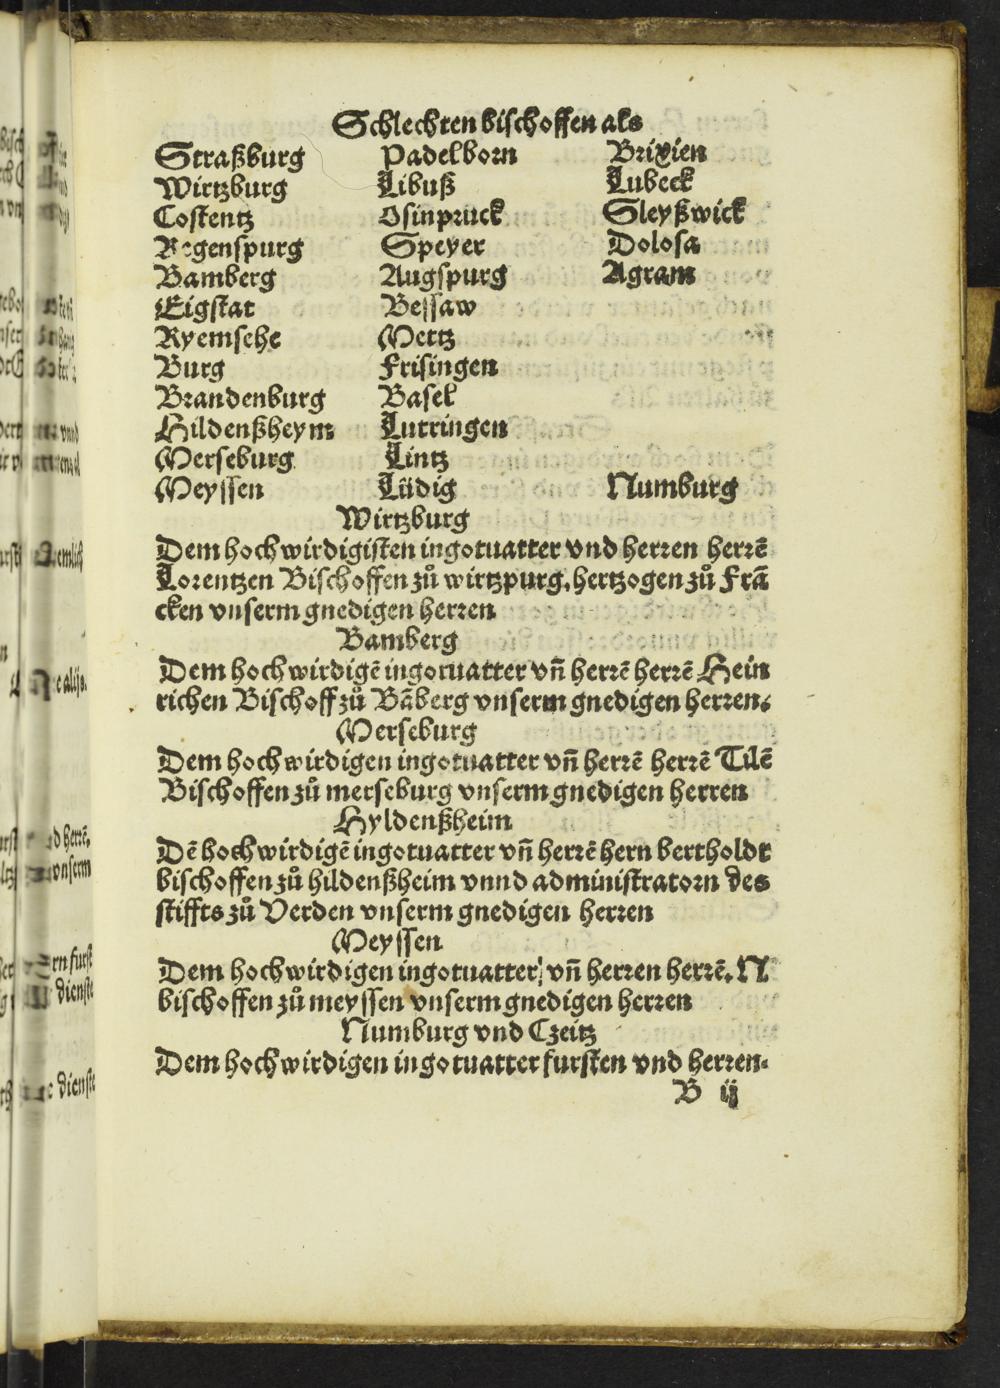 Schlechten bischoffen als
Straßburg Padelborn Brixien
Wirtzburg Libuß Lubeck
Costentz Osinpruck Sleyßwick
Regenspurg Speyer Dolosa
Bamberg Augspurg Agram
Eigstat Bessaw
Ryemsehe Mettz
Burg Frisingen
Brandenburg Basel
Hildenßheym Lutringen
Merseburg Lintz
Meyssen Lüdig Numburg
Wirtzburg
Dem hochwirdigisten in gotuatter vnd herren herrē
Lorentzen Bischoffen zů wirtzpurg, hertzogen zů Frā
cken vnserm gnedigen herren
Bamberg
Dem hochwirdigē in gotuatter vn̄ herrē herrē Hein
richen Bischoff zů Bāberg vnserm gnedigen herren.
Merseburg
Dem hochwirdigen in gotuatter vn̄ herrē herrē Tilē
Bischoffen zů merseburg vnserm gnedigen herren
Hyldenßheim
Dē hochwirdigē in gotuatter vn̄ herrē hern bertholdt
bischoffen zů hildenßheim vnnd administratorn des
stiffts zů Verden vnserm gnedigen herren
Meyssen
Dem hochwirdigen in gotuatter vn̄ herren herrē. N
bischoffen zů meyssen vnserm gnedigen herren
Numburg vnd Czeitz
Dem hochwirdigen in gotuatter fursten vnd herren.
B ij